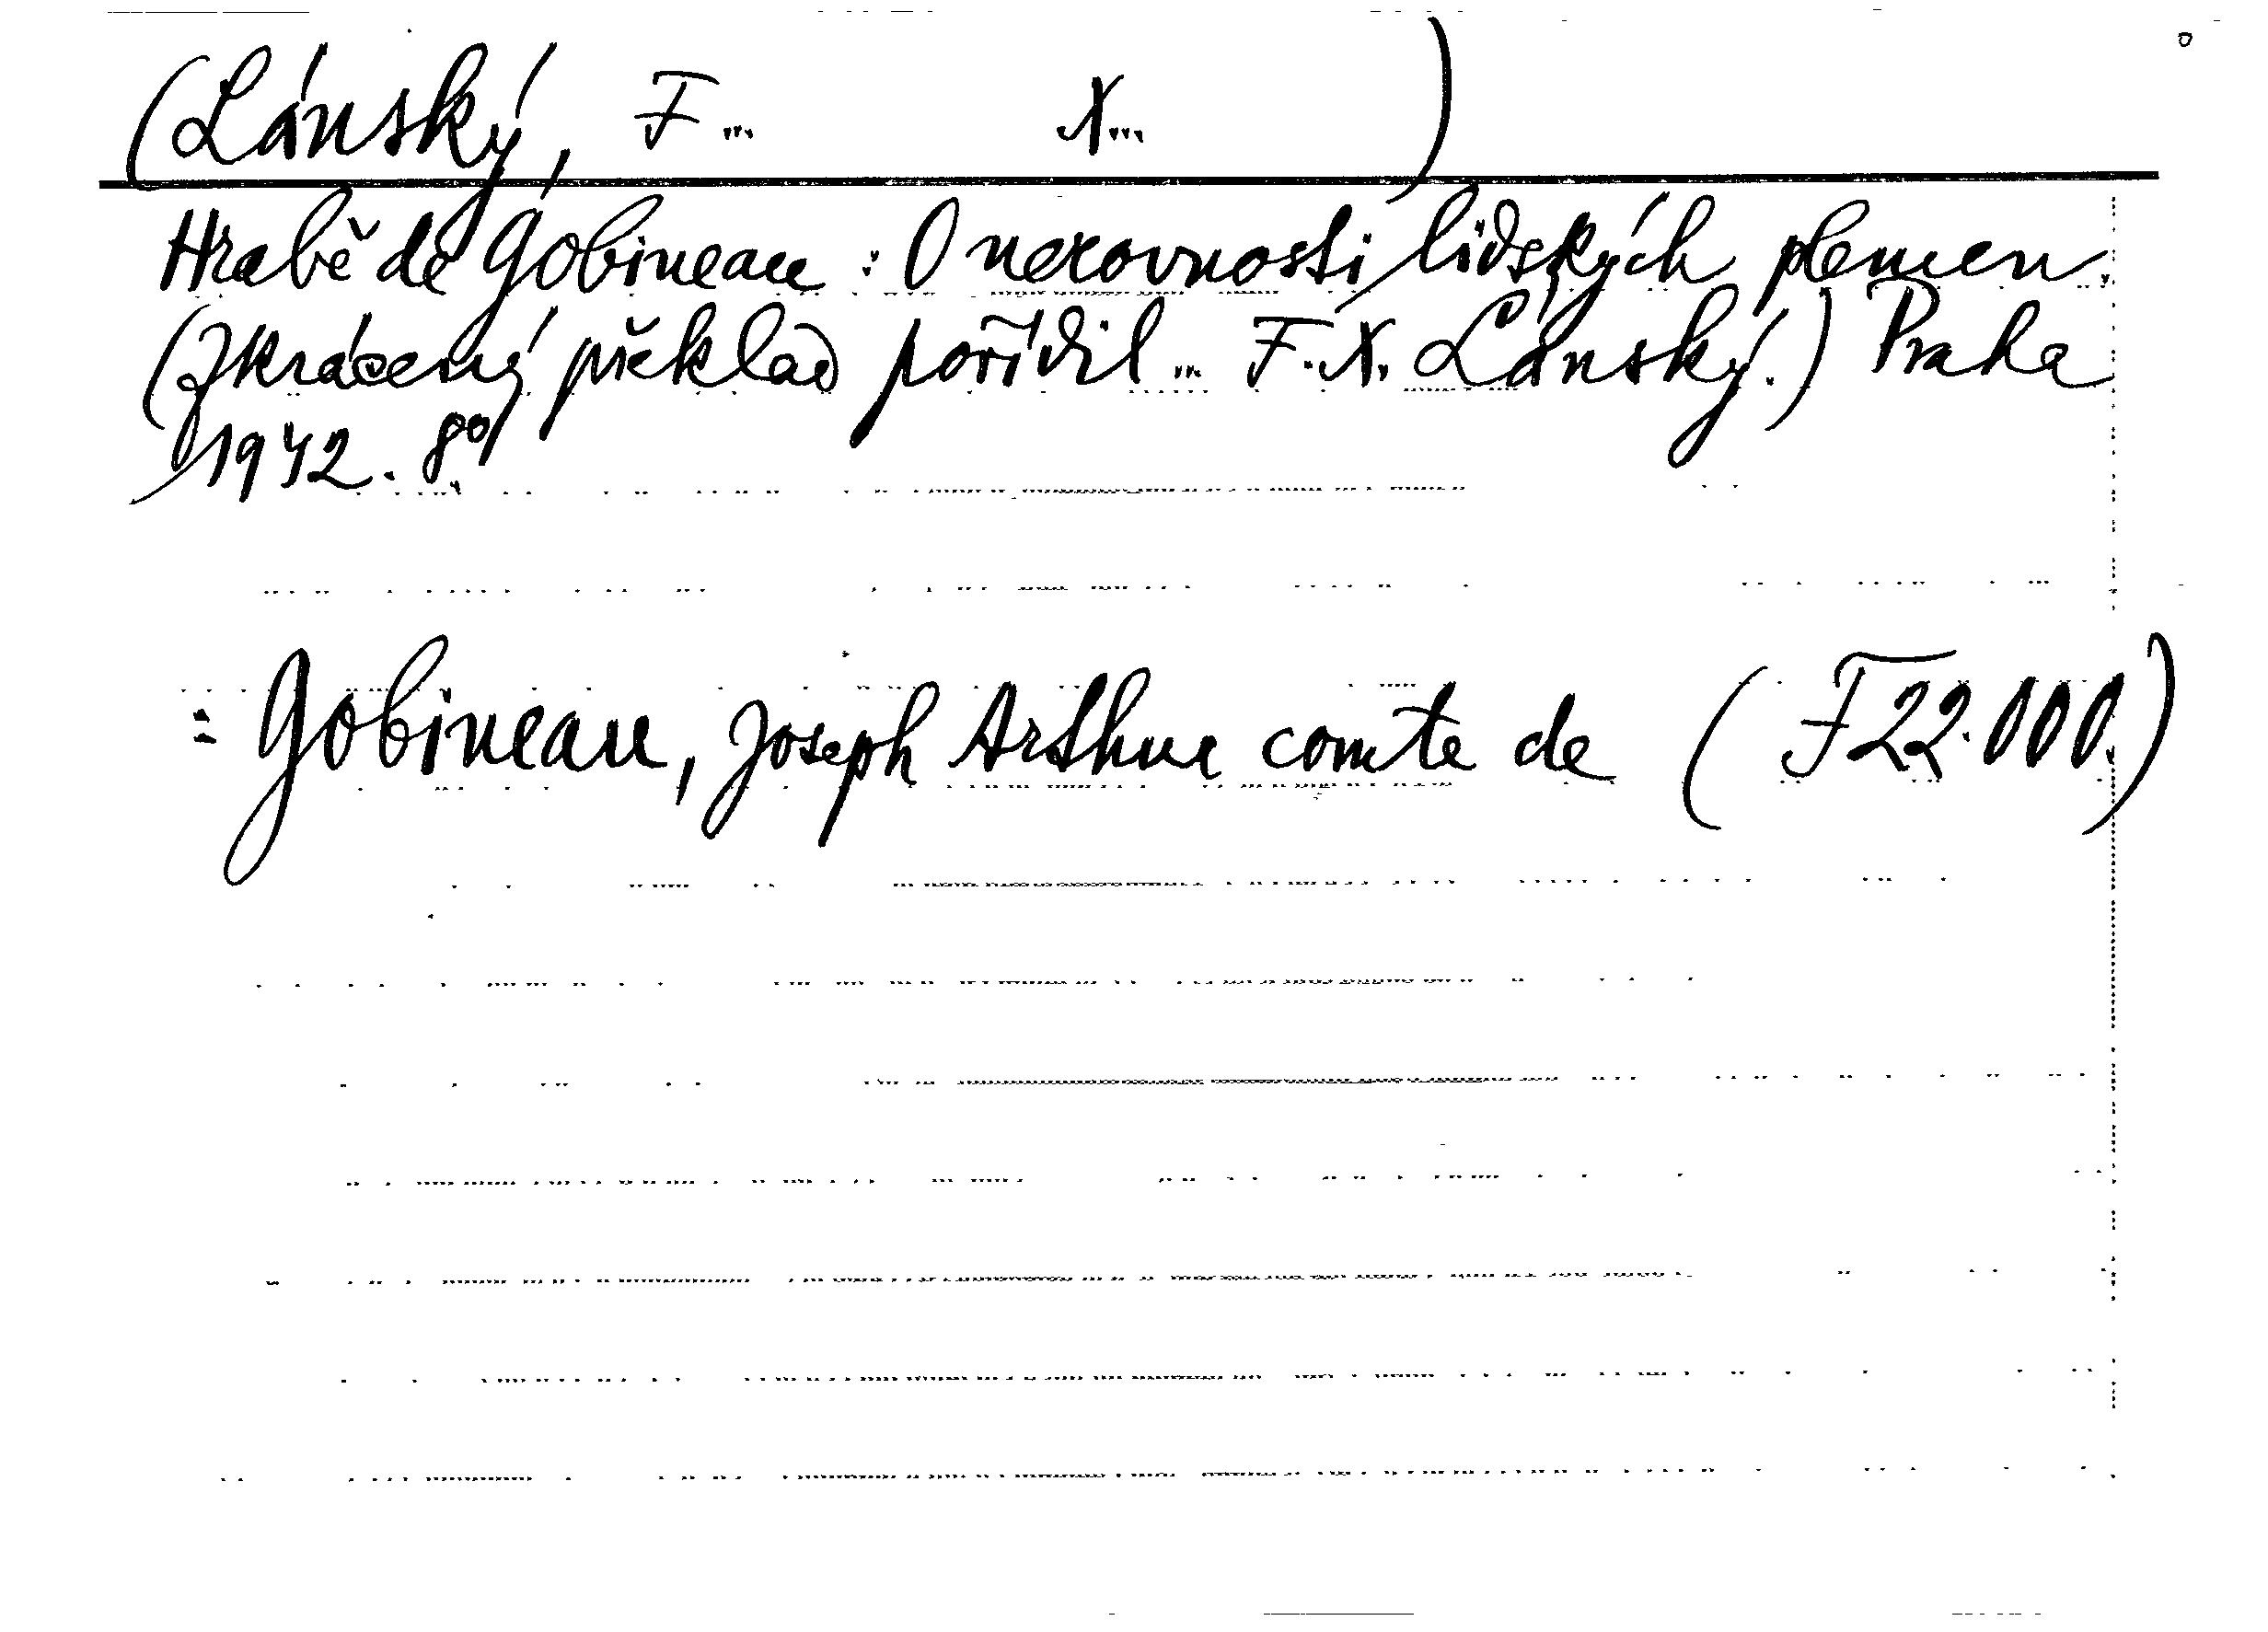 (Lánský, F... X...)
Hrabě de Gobineau: O nerovnosti lidských plemen.
(Zkrácený překlad pořídil... F. X. Lánský.) Praha
1942. 8°.
= Gobineau, Joseph Arthur comte de (F 22.000.)